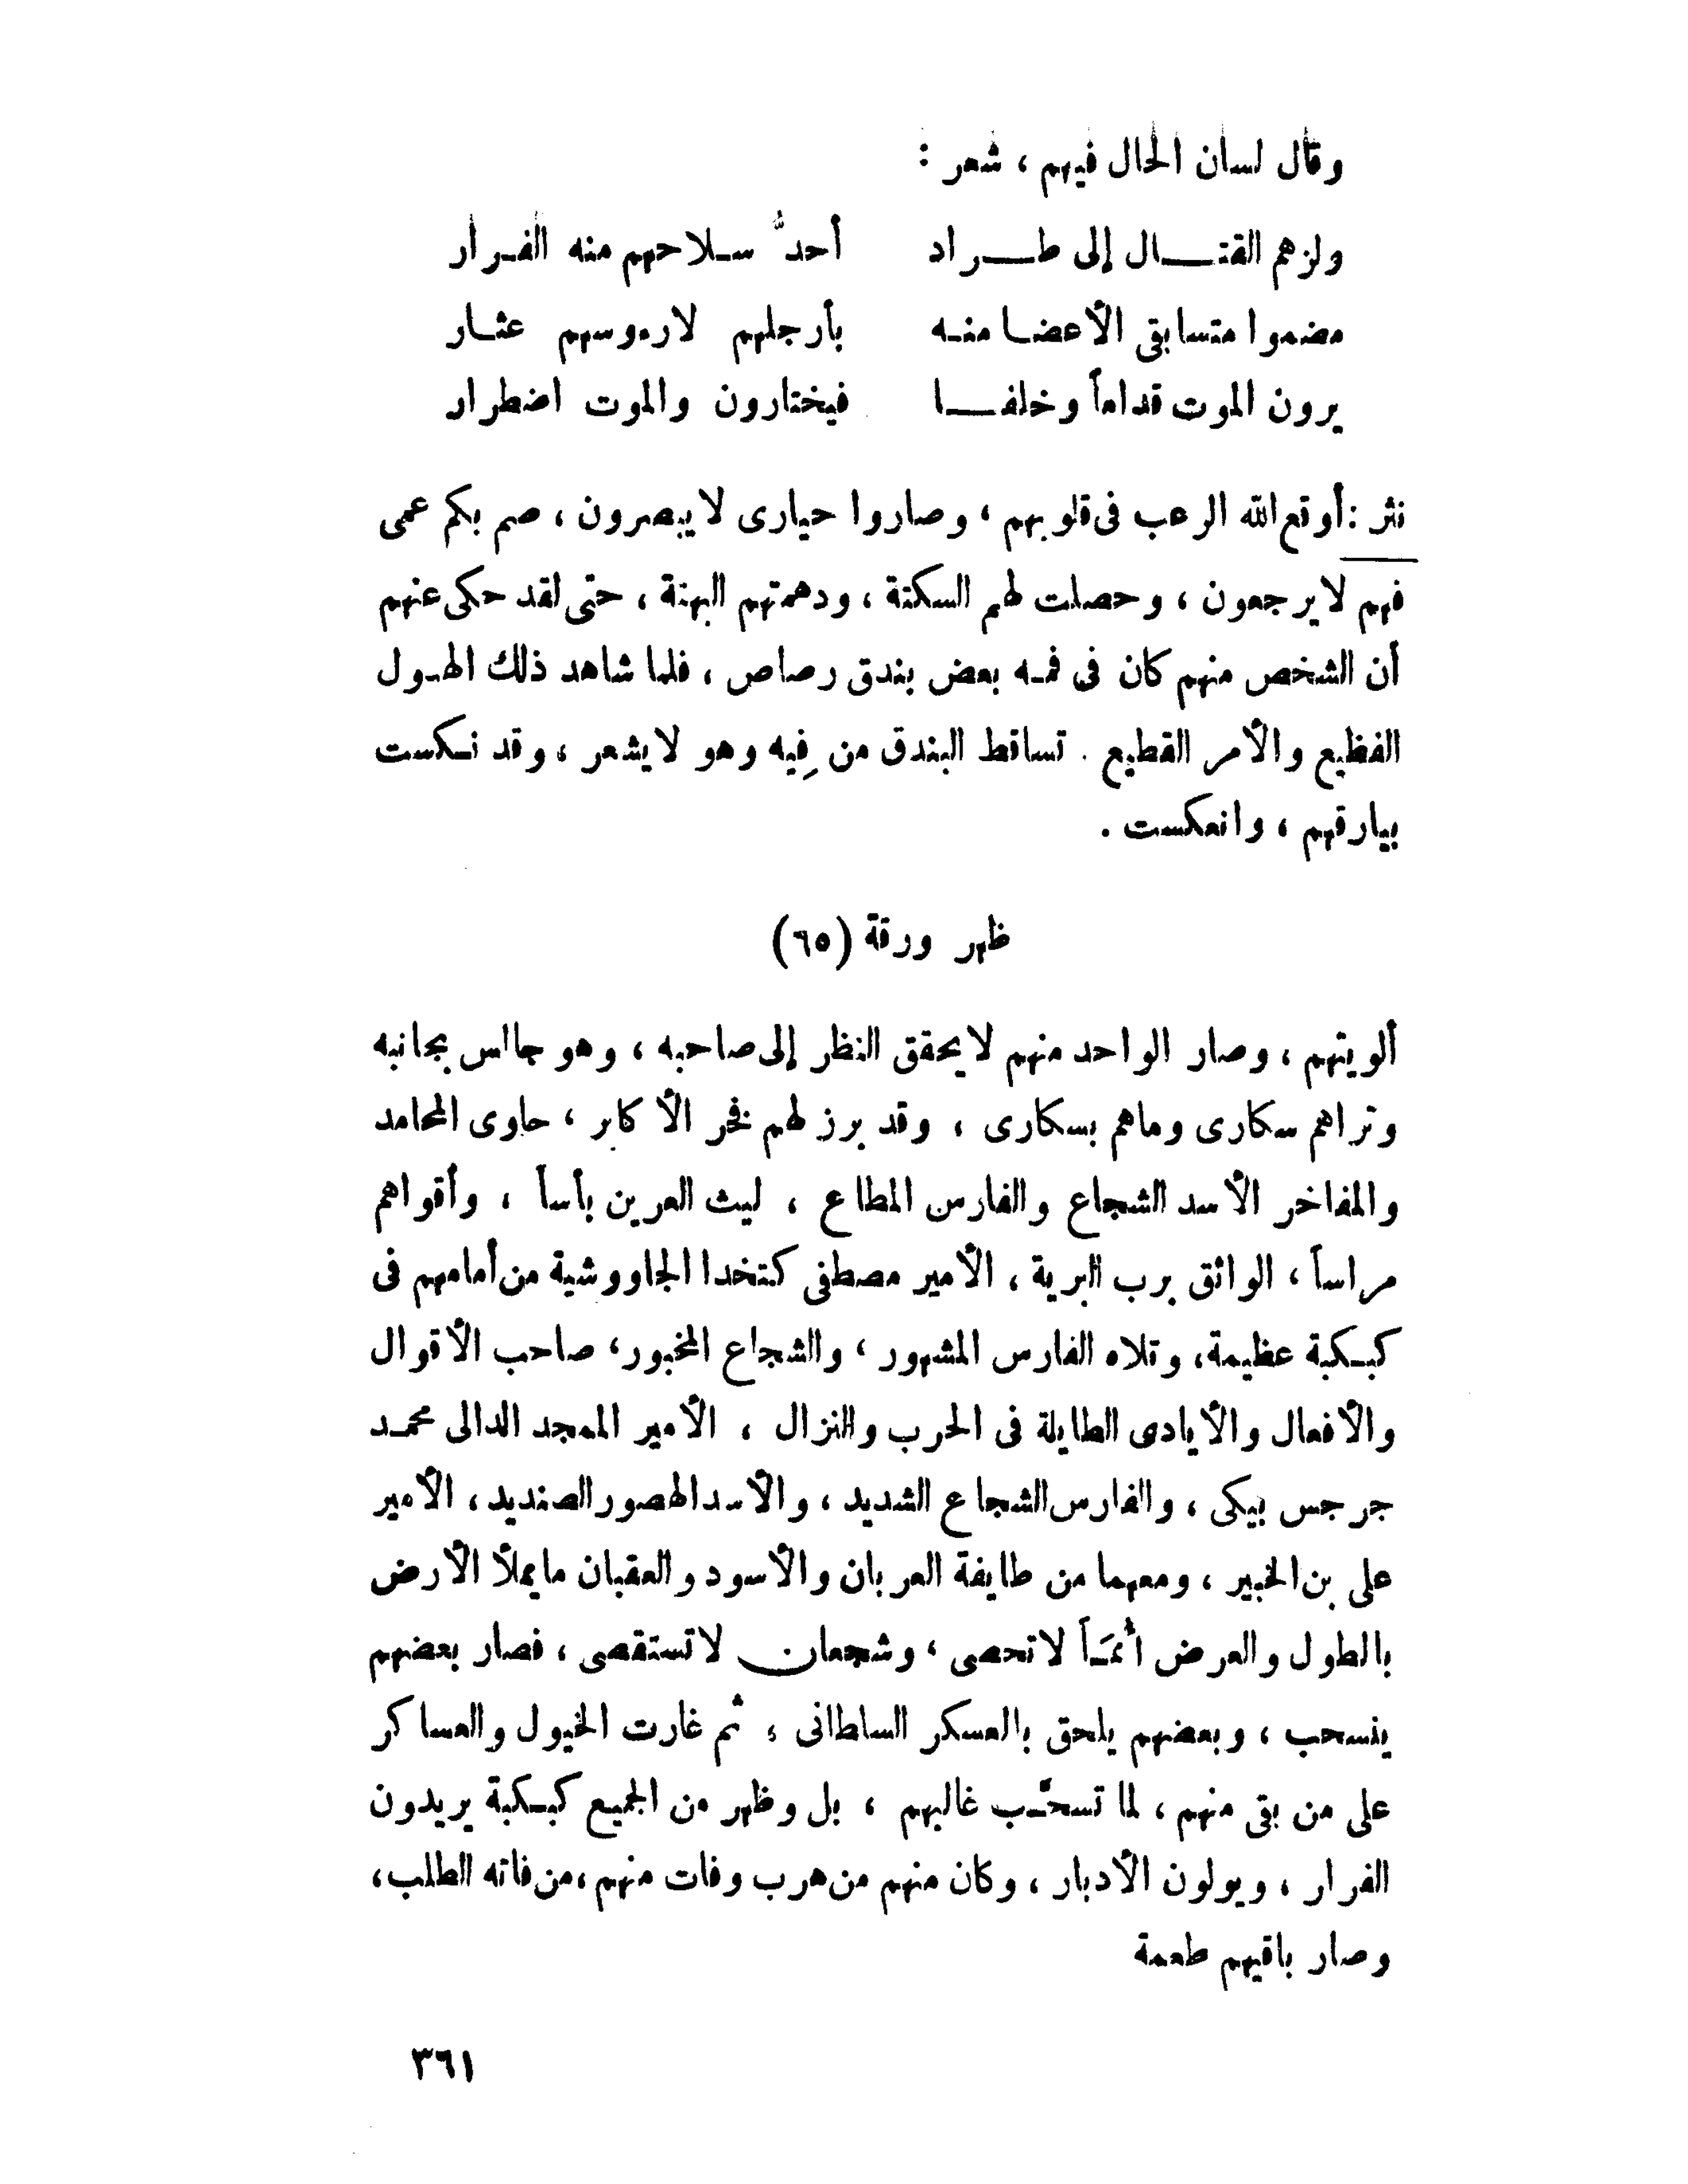 وقال لسان الحال فيهم ، شعر :
ولزهم القتـــال إلى طـــراد أحدُّ سـلاحهم منه الفـرار
مضموا متسابقى الأعضـا منـه بأرجلهم لارءوسهم عثـار
يرون الموت قداماً وخلفــا فيختارون والموت اضطرار
نثر : أوقع الله الرعب فى قلوبهم ، وصاروا حيارى لا يبصرون ، صم بكم عمى
فهم لا يرجعون ، وحصلت لهم السكتة ، ودهمتهم البهتة ، حتى لقد حكى عنهم
أن الشخص منهم كان فى فمـه بعض بندق رصاص ، فلما شاهد ذلك الهـول
الفظيع والأمر القطيع . تساقط البندق من فِيه وهو لا يشعر ، وقد نـكست
بيارقهم ، وانعكست .
ظهر ورقة (٦٥)
ألويتهم ، وصار الواحد منهم لا يحقق النظر إلى صاحبه ، وهو جالس بجانبه
وتراهم سكارى وماهم بسكارى ، وقد برز لهم فخر الأكابر ، حاوى المحامد
والمفاخر الأسد الشجاع والفارس المطاع ، ليث العرين بأساً ، وأقواهم
مراساً ، الواثق برب البرية ، الأمير مصطفى كتخدا الجاووشية من أمامهم فى
كبـكبة عظيمة، وتلاه الفارس المشهور ، والشجاع المخبور، صاحب الأقوال
والأفعال والأيادى الطايلة فى الحرب والنزال ، الأمير الممجد الدالى محمـد
جرجس بيكى ، والفارس الشجاع الشديد ، والأسد الهصور الصنديد ، الأمير
على بن الخبير ، ومعهما من طايفة العربان والأسود والعقبان ما يملأ الأرض
بالطول والعرض أُمَـَاً لا تحصى ، وشجعان لا تستقصى ، فصار بعضهم
ينسحب ، وبعضهم يلحق بالعسكر السلطانى ؛ ثم غارت الخيول والعساكر
على من بقى منهم ، لما تسحَّـب غالبهم ، بل وظهر من الجميع كبـكبة يريدون
الفرار ، ويولون الأدبار ، وكان منهم من هرب وفات منهم ،من فاته الطلب،
وصار باقيهم طعمة
٣٦١